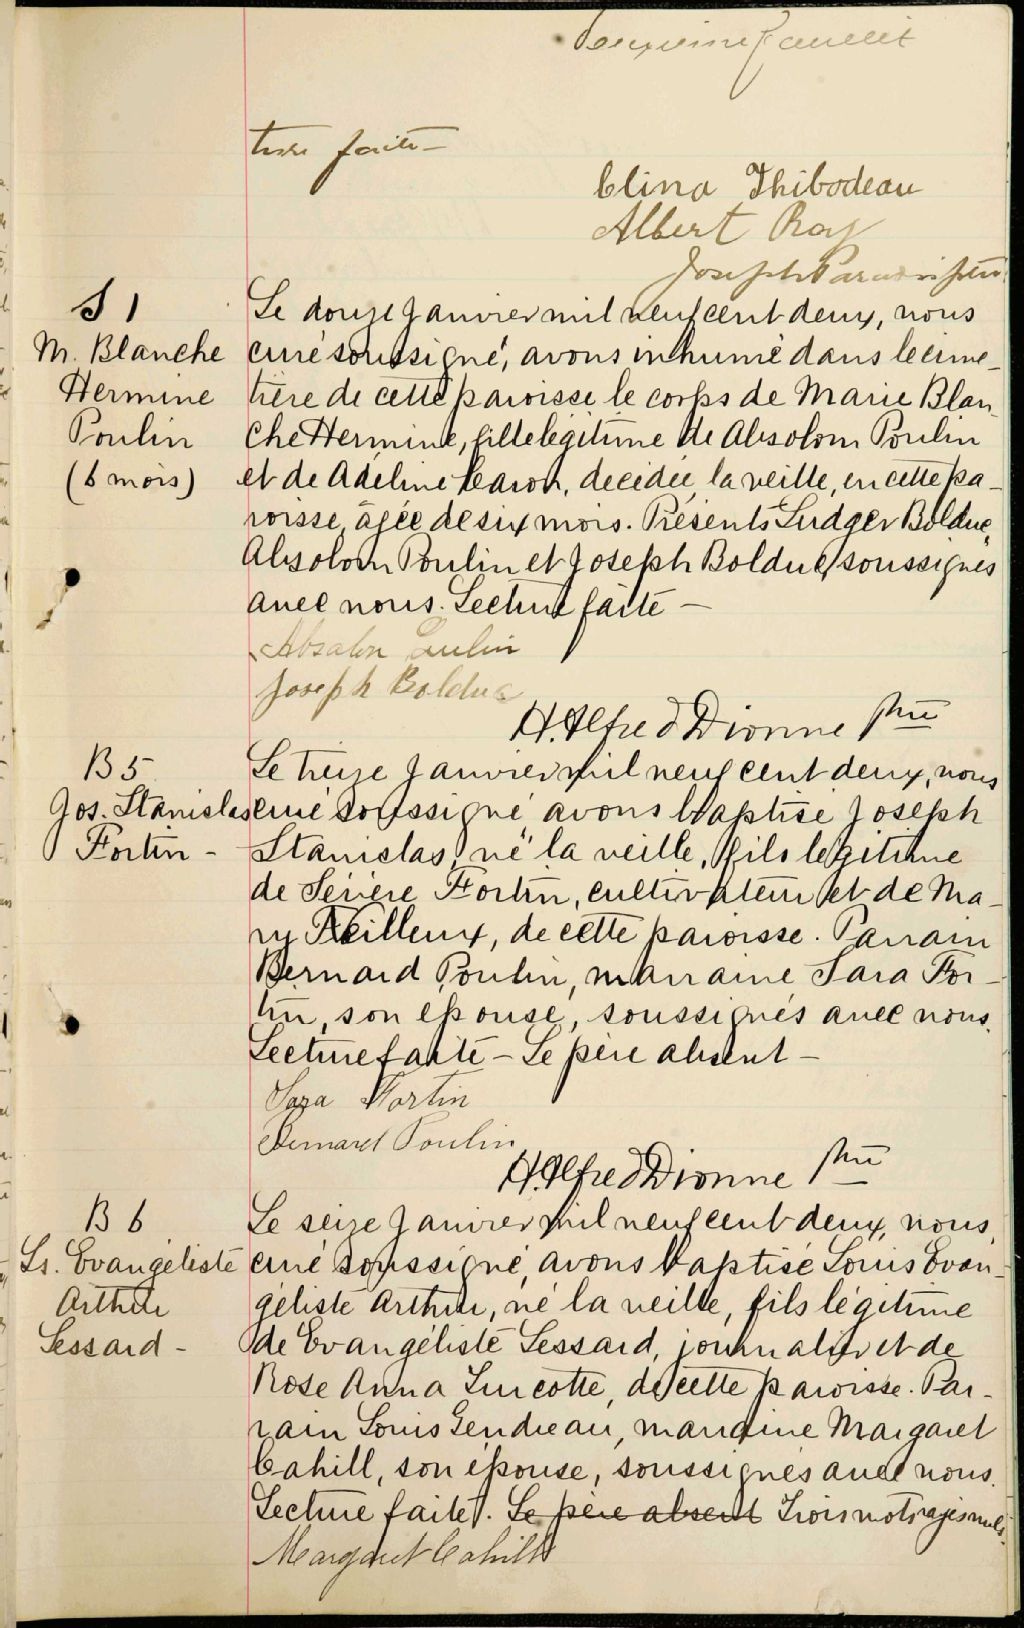 ture faite—
Clina Thibodeau
Albert Roy
Joseph
S 1
M. Blanche
Hermine
Poulin
(6 mois)
Le douze Janvier mil neuf cent deux, nous
curé soussigné, avons inhumé dans le cime-
tière de cette paroisse le corps de Marie Blan-
che Hermine, fille légitime de Absolom Poulin
et de Adéline Caron, décédée, la veille, en cette pa-
roisse, âgée de six mois. Présents Ludger Bolduc,
Absolom Poulin et Joseph Bolduc, soussignés
avec nous. Lecture faite —
Absalon Poulin
Joseph Bolduc
H. Alfred Dionne Ptre
B 5
Jos. Stanislas
Fortin -
Le treize Janvier mil neuf cent deux, nous
curé soussigné avons baptisé Joseph
Stanislas, né la veille, fils légitime
de Sévère Fortin, cultivateur et de Ma-
ry Veilleux, de cette paroisse. Parrain
Bernard Poulin, marraine Sara For-
tin, son épouse, soussignés avec nous.
Lecture faite — Le père absent —
Sara Fortin
Bernard Poulin
H. Alfred Dionne Ptre
B 6
Ls. Evangéliste
Arthur
Lessard -
Le seize Janvier mil neuf cent deux, nous,
curé soussigné, avons baptisé Louis Evan-
géliste Arthur, né la veille, fils légitime
de Evangéliste Lessard, journalier et de
Rose Anna Turcotte, de cette paroisse. Par-
rain Louis Gendreau, marraine Margaret
Cahill, son épouse, soussignés avec nous.
Lecture faite. Le père absent Trois mots rayés nuls.
Margaret Cahill